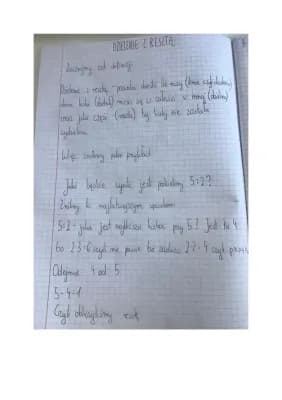 DZIELENIE Z RESZTĄ
Zacznijmy od definicji
Dzielenie z resztą - pozwala określić ile razy (dana część
dana liczba (dzielnik) mieści się w całości w innej (dzielnej)
oraz jaka część (reszta) tej liczby nie została
Więc zróbmy jakiś przykład
Jaki będzie wynik jeśli podzielimy 5:2?
Zróbmy to najłatwiejszym sposobem
5:2 - jaka jest najbliższa liczba przy 5? Jest to 4
bo 2·3=6 czyli nie pasuje bo za dużo 2·2=4 czyli
Odejmuję 4 od 5
5-4=1
Czyli otrzymujemy